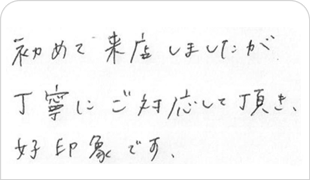 初めて来店しましたが
丁寧にご対応して頂き、
好印象です、